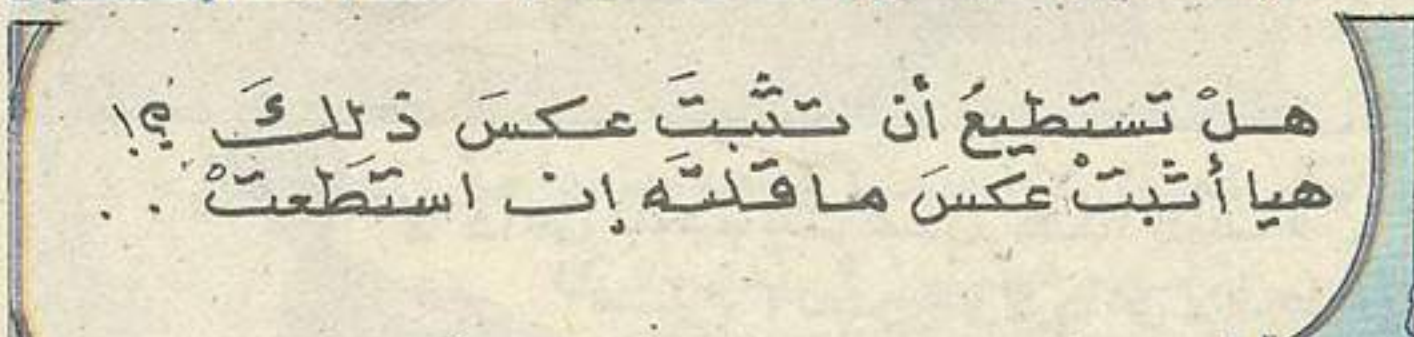 هلْ تستطيعُ أن تثبتَ عكسَ ذلكَ ؟!
هيا أثبتْ عكسَ ما قلتَه إن استطَعتْ . .